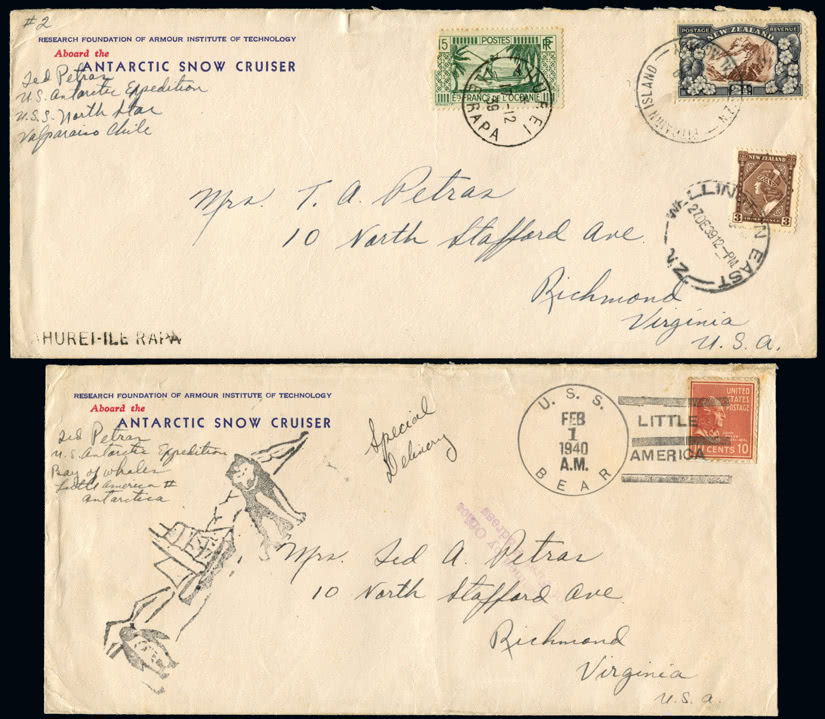 #2
RESEARCH FOUNDATION OF ARMOUR INSTITUTE OF TECHNOLOGY
Aboard the
ANTARCTIC SNOW CRUISER
Ted Petras
U.S. Antarctic Expedition
U.S.S. North Star
Valparaiso Chile
5 POSTES RF
ETS FRANCS DE L'OCEANIE
AHUREI
12
39
RAPA
POSTAGE REVENUE
NEW ZEALAND
PITCAIRN ISLAND
NEW ZEALAND
3 3
WELLINGTON EAST
27DE39 12-PM
N.Z.
Mrs. T. A. Petras
10 North Stafford Ave.
Richmond
Virginia
U.S.A.
AHUREI-ILE RAPA
RESEARCH FOUNDATION OF ARMOUR INSTITUTE OF TECHNOLOGY
Aboard the
ANTARCTIC SNOW CRUISER
Ted Petras
U.S. Antarctic Expedition
Bay of Whales
Little America III
Antarctica
Special
Delivery
U.S.S.
FEB
1
1940
A.M.
BEAR
LITTLE
AMERICA
UNITED
STATES
POSTAGE
CENTS 10
Mrs. Ted A. Petras
10 North Stafford Ave.
Richmond
Virginia
U.S.A.